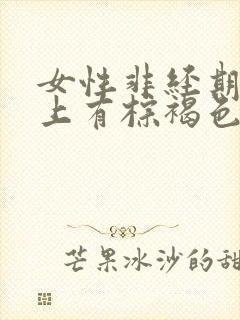 女性非经期
上有棕褐色
芒果冰沙的甜